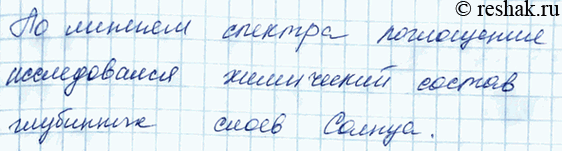 © reshak.ru
По линиям спектра поглощения
исследовался химический состав
глубинных слоев Солнца.